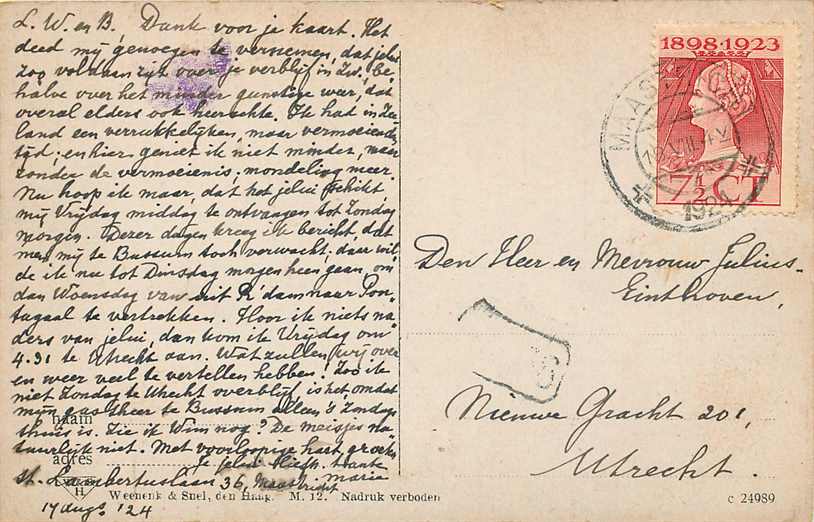 L. W. en B, Dank voor je kaart. Het
deed mij genoegen te vernemen, dat jelui
zoo voldaan zijt over je verblijf in Zw. be-
halve over het minder gunstige weer, dat
overal elders ook heerschte. Ik had in Zee-
land een verrukkelijken, maar vermoeienden
tijd; en hier geniet ik niet minder, maar
zonder de vermoeienis; mondeling meer.
Nu hoop ik maar, dat het jelui schikt
mij Vrijdag middag te ontvangen tot Zondag
morgen. Dezer dagen kreeg ik bericht, dat
men mij te Bussum toch verwacht; daar wil-
de ik nu tot Dinsdag morgen heen gaan, om
dan Woensdag van uit R'dam naar Por-
tugaal te vertrekken. Hoor ik niets na-
ders van jelui, dan kom ik Vrijdag om
4.31 te Utrecht aan. Wat zullen wij over
en weer veel te vertellen hebben! Zoo ik
niet Zondag te Utrecht overblijf, is het, omdat
mijn gastheer te Bussum alleen 's Zondags
thuis is. Zie ik Wim nog? De meisjes na-
tuurlijk niet. Met voorloopige hart. groeten
je jelui liefh. tante
Marie
St. Lambertuslaan 36, Maastricht
17 Aug. '24
naam
adres
H
Weenenk & Snel, den Haag. M. 12. Nadruk verboden
c 24989
1898·1923
7½ CT
MAAS
VIII
1924
Den Heer en Mevrouw Julius-
Einthoven,
Nieuwe Gracht 201,
Utrecht.